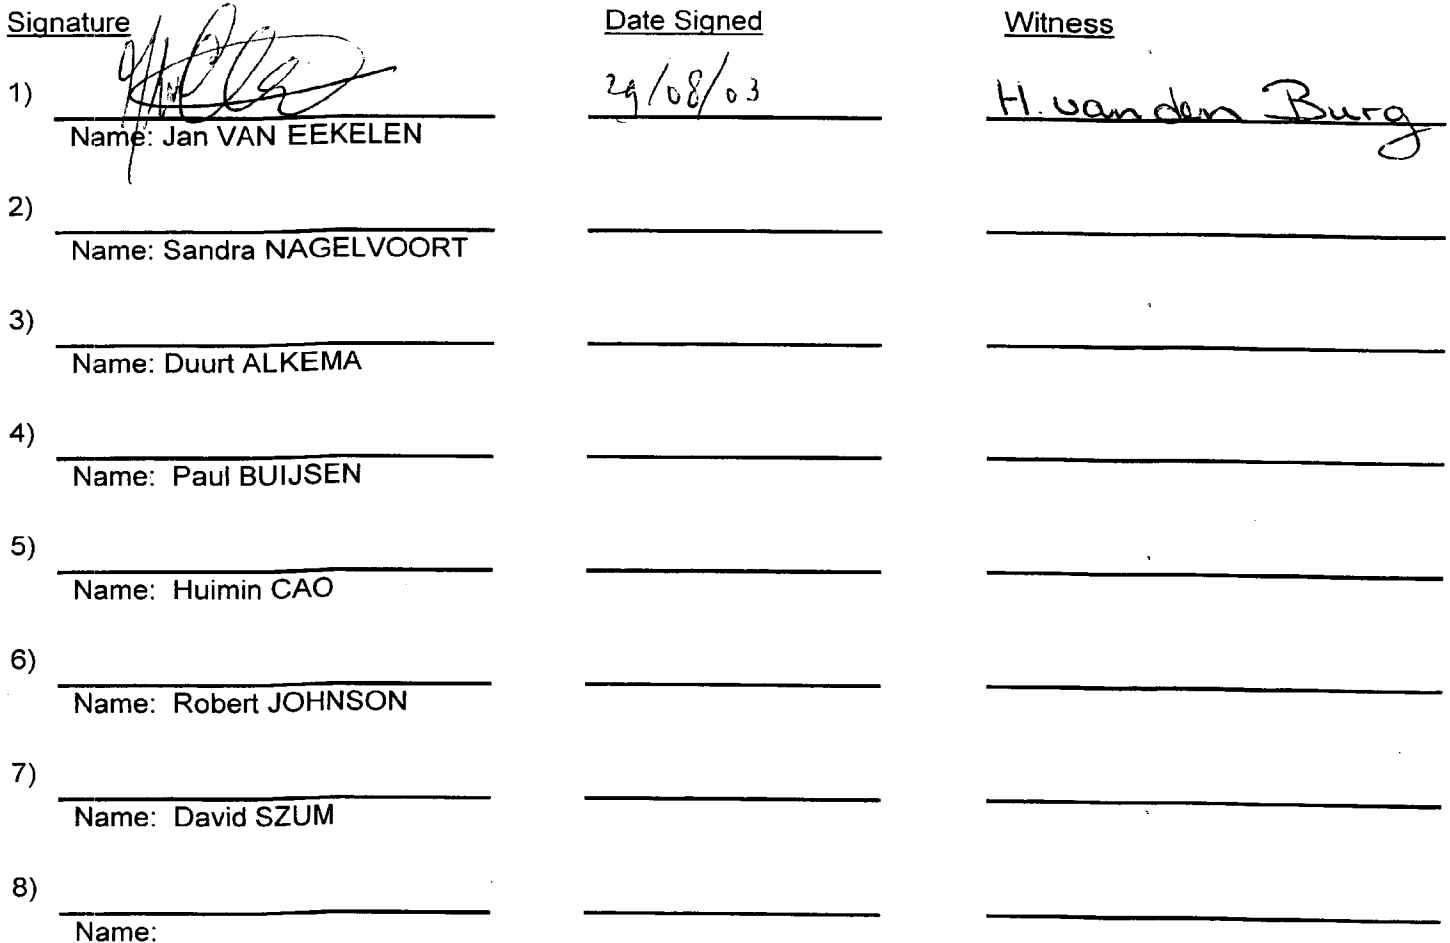 Signature Date Signed Witness
1) 29/08/03 H. van den Burg
Name: Jan VAN EEKELEN
2)
Name: Sandra NAGELVOORT
3)
Name: Duurt ALKEMA
4)
Name: Paul BUIJSEN
5)
Name: Huimin CAO
6)
Name: Robert JOHNSON
7)
Name: David SZUM
8)
Name: